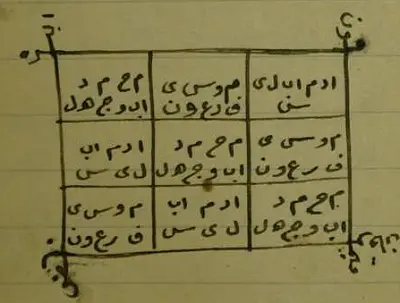 ا د م ا ب ل ی
س
م و س ی
ف ر ع و ن
م ح م د
ا ب و ج ه ل
م و س ی
ف ر ع و ن
م ح م د
ا ب و ج ه ل
ا د م ا ب
ل ی س
م ح م د
ا ب و ج ه ل
ا د م ا ب
ل ی س
م و س ی
ف ر ع و ن